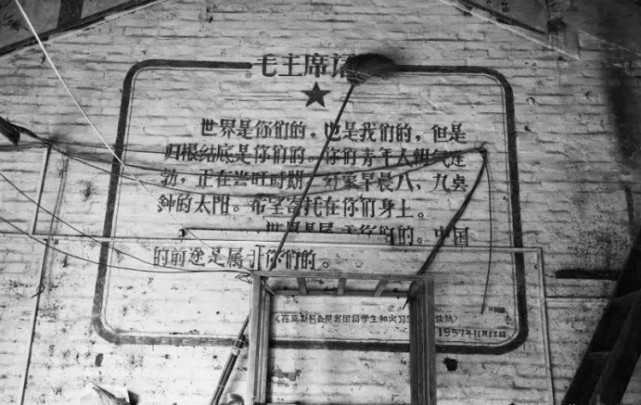 毛主席语
世界是你们的，也是我们的，但是
归根结底是你们的。你们青年人朝气蓬
勃，正在兴旺时期，好象早晨八、九点
钟的太阳。希望寄托在你们身上。
世界是属于你们的。中国
的前途是属于你们的。
《在莫斯科会见我国留学生和实习生
1957年11月17日